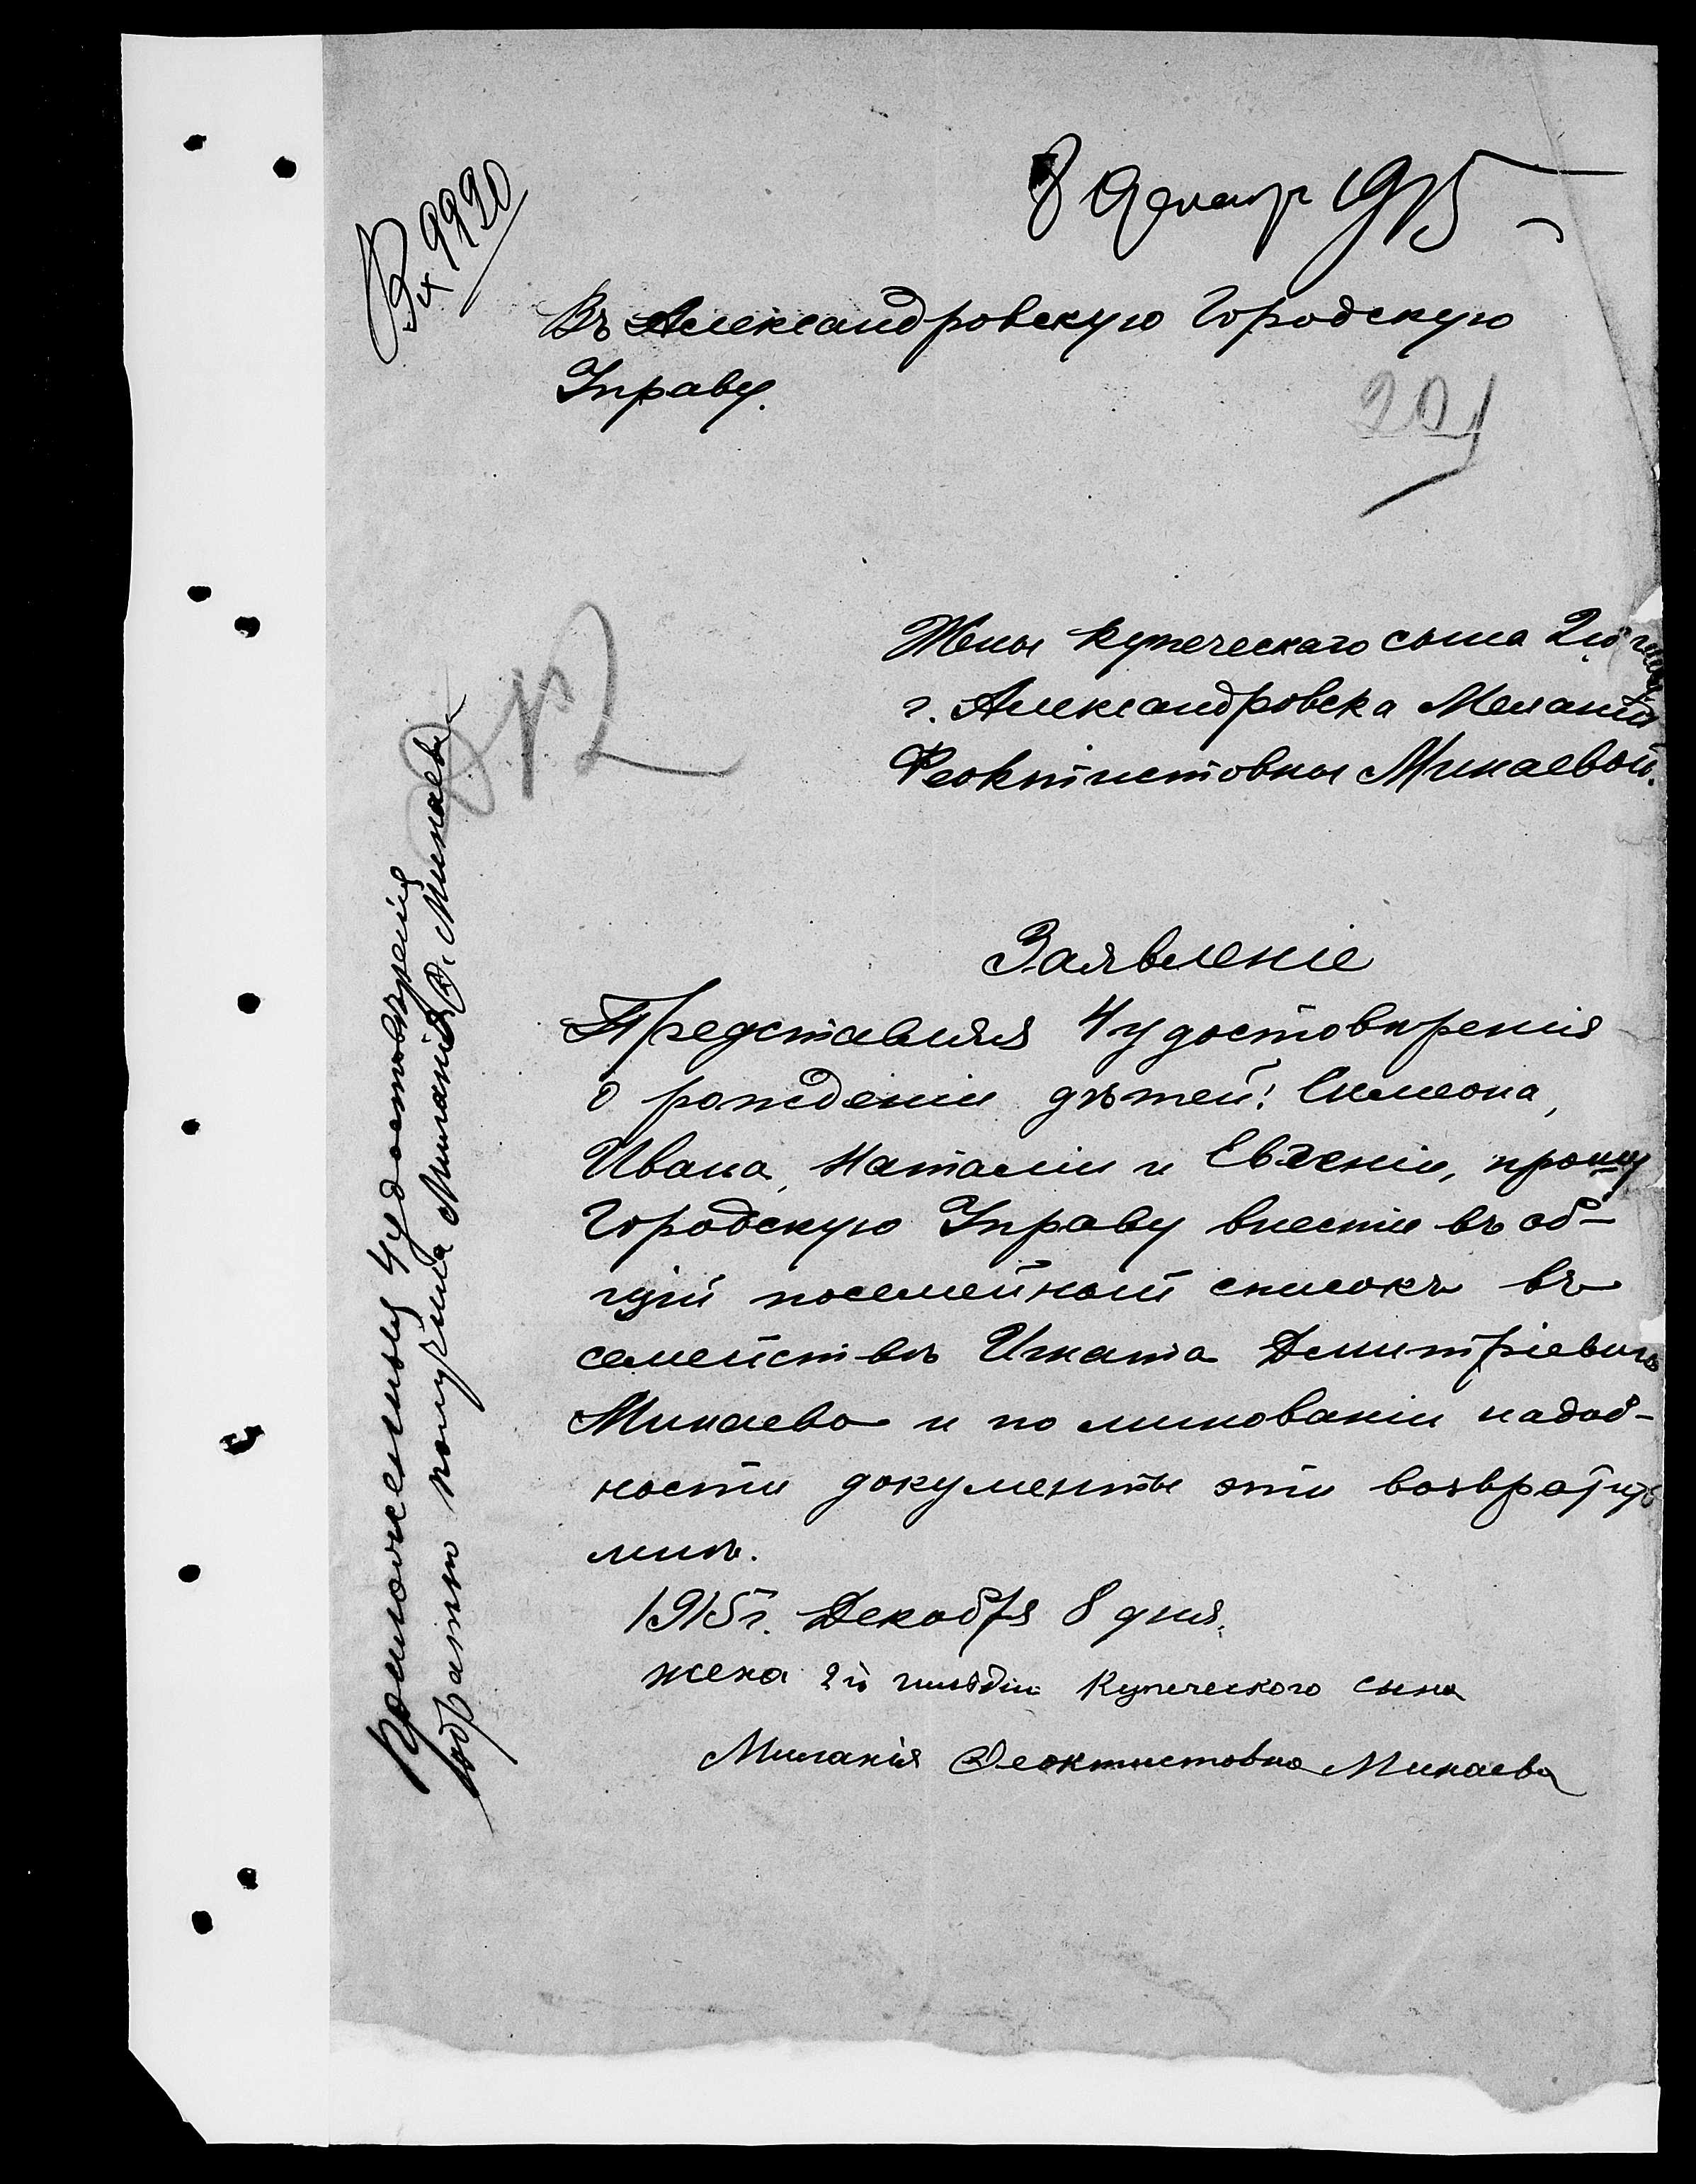 8 Декабр 1915
Вх 9990
Въ Александровскую Городскую
Управу.
201
Жены купеческаго сына 2й гил
г. Александровска Меланіи
Феоктистовны Минаевой.
82
Заявленіе
Представляя 4 удостовѣренія
о рожденіи дѣтей: Симеона,
Ивана, Наталіи и Евгеніи, прошу
Городскую Управу внести въ об-
щій посемейный списокъ въ
семействѣ Игната Дмитріевича
Минаева и по минованіи надоб-
ности документы эти возвратить
мнѣ.
1915 г. Декабря 8 дня.
жена 2й гильдіи купеческого сына
Миланія Феоктистовна Минаева
Приложенныя 4 удостовѣренія
обратно получила Миланія Ф. Минаева